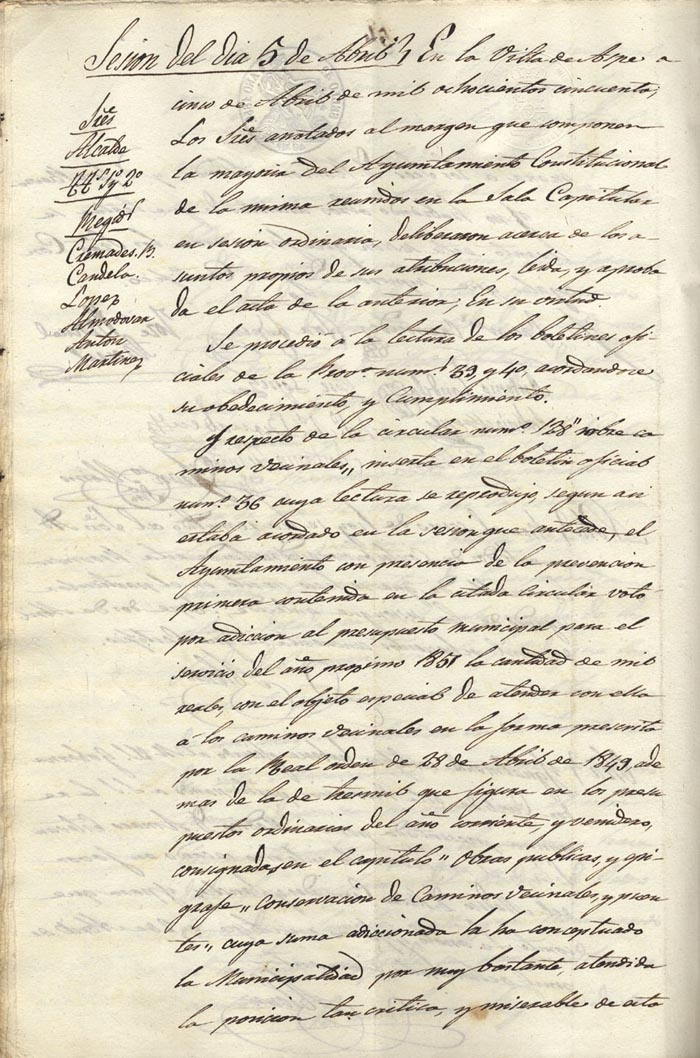 Sesion del dia 5 de Abril, En la Villa de Aspe a
cinco de Abril de mil ochocientos cincuenta;
Los Sres anotados al margen que componen
la mayoria del Ayuntamiento Constitucional
de la misma reunidos en la Sala Capitular
en sesion ordinaria, deliberaron acerca de los a-
suntos propios de sus atribuciones, leida, y aproba
da el acta de la anterior; En su virtud
Se procedió á la lectura de los boletines ofi-
ciales de la Prova. nums. 39 y 40, acordandose
su obedecimiento, y Cumplimiento.
Y respecto de la circular numo. 128 "sobre ca
minos vecinales,, inserta en el boletin oficial
numo. 36 cuya lectura se reprodujo, segun asi
estaba acordado en la sesion que antecede, el
Ayuntamiento con presencia de la prevencion
primera contenida en la citada Circular votó
por adiccion al presupuesto municipal para el
servicio del año proximo 1851 la cantidad de mil
reales, con el objeto especial de atender con ella
á los caminos vecinales en la forma prescrita
por la Real orden de 28 de Abril de 1849 ade
mas de la de tresmil que figura en los presu
puestos ordinarios del año corriente, y venidero,
consignadas en el capitulo " Obras publicas, y epi-
grafe ,, Conservacion de Caminos vecinales, y puen
tes,, cuya suma adiccionada la ha conceptuado
la Municipalidad por muy bastante, atendida
la posicion tan critica, y miserable de esta
Sres
Alcalde
TT 1º y 2º
Regids
Cremades. B.
Candela.
Lopez
Almodovar
Anton
Martinez